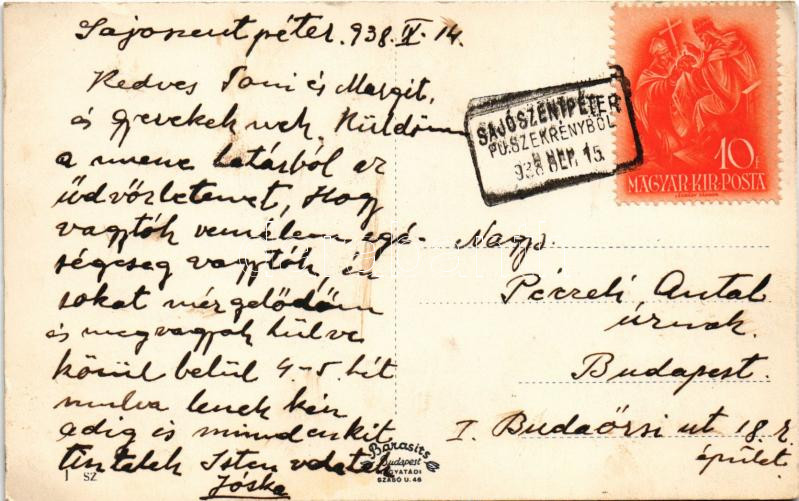 Sajoszent péter. 938. IX. 14.
Kedves Toni és Margit,
és gyerekek nek. Küldöm
a messze
üdvözletemet, Hogy
vagytok remélem egé-
ségeseg vagytok, én
sokat mérgelődöm
és megvagyok hülve
körül belül 4-5 hét
mulva lenek kén
adig is mindenkit
Isten veletek
Jóska
SAJÓSZENTPÉTER
PU.SZEKRÉNYBŐL
938 SEP. 15.
10f
MAGYAR·KIR·POSTA
Nagys.
Péczeli Antal
úrnak.
Budapest.
I. Budaörsi ut 18.
épület.
Barasits
Budapest
NAGYATÁDI
SZABÓ U. 46
1 SZ